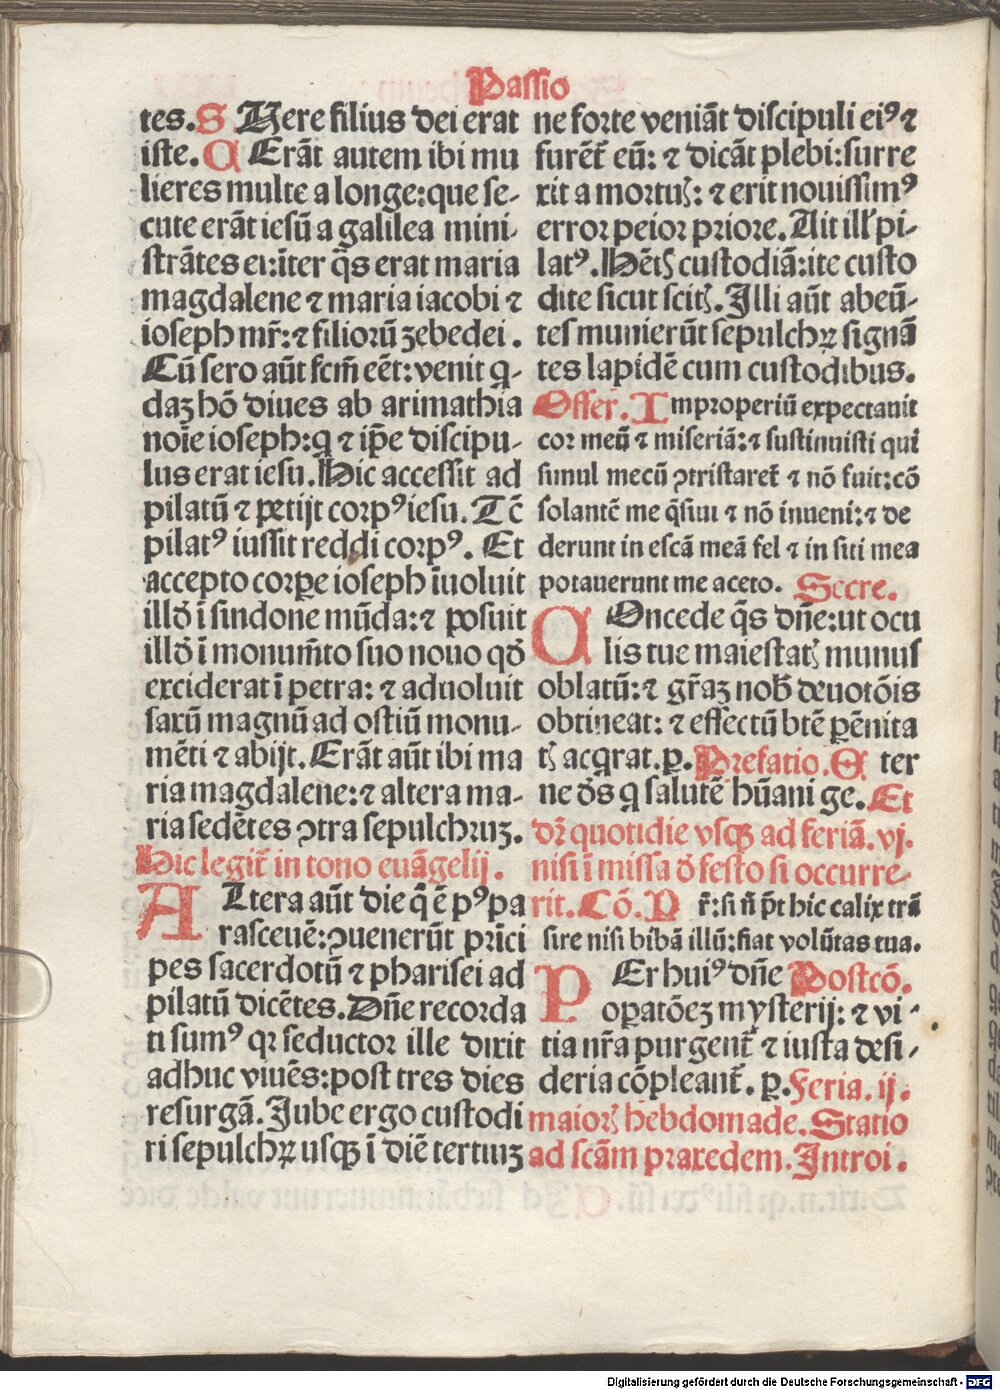 Passio
tes. S Uere filius dei erat
iste. C Erāt autem ibi mu
lieres multe a longe: que se-
cute erāt iesū a galilea mini-
strātes ei: īter q̄s erat maria
magdalene ⁊ maria iacobi ⁊
ioseph mr̄: ⁊ filiorū zebedei.
Cū sero aūt fcm̄ eēt: venit q-
daʒ hō diues ab arimathia
noīe ioseph: q ⁊ ip̄e discipu-
lus erat iesu. Hic accessit ad
pilatū ⁊ petijt corpꝰ iesu. Tc̄
pilatꝰ iussit reddi corpꝰ. Et
accepto corꝑe ioseph īuoluit
illđ ī sindone mūda: ⁊ posuit
illđ ī monum̄to suo nouo qđ
exciderat ī petra: ⁊ aduoluit
saxū magnū ad ostiū monu-
mēti ⁊ abijt. Erāt aūt ibi ma
ria magdalene: ⁊ altera ma-
ria sedētes ꝯtra sepulchruʒ.
Hic legit᷑ in tono euāgelij.
ALtera aūt die q̄ ē pꝰ pa
rasceuē: ꝯuenerūt prīci
pes sacerdotū ⁊ pharisei ad
pilatū dicētes. Dn̄e recorda
ti sumꝰ qr seductor ille dixit
adhuc viuēs: post tres dies
resurgā. Jube ergo custodi
ri sepulchꝝ usqꝫ ī diē tertiuʒ
ne forte veniāt discipuli eiꝰ ⁊
furēt᷑ eū: ⁊ dicāt plebi: surre
xit a mortuꝭ: ⁊ erit nouissimꝰ
error peior priore. Ait ill᷑ pi-
latꝰ. Hētꝭ custodiā: ite custo
dite sicut scitꝭ. Illi aūt abeū-
tes munierūt sepulchꝝ signā
tes lapidē cum custodibus.
Offer. Improperiū expectauit
cor meū ⁊ miseriā: ⁊ sustinuisti qui
simul mecū ꝯtristaret᷑ ⁊ nō fuit: cō
solantē me q̄siui ⁊ nō inueni: ⁊ de
derunt in escā meā fel ⁊ in siti mea
potauerunt me aceto. Secre.
COncede q̄s dn̄e: ut ocu
lis tue maiestatꝭ munus
oblatū: ⁊ gr̄aʒ nob̄ deuotōis
obtineat: ⁊ effectū btē ꝑēnita
tꝭ acqrat. ꝑ. Prefatio. E ter
ne đs q salutē hūani ge. Et
dr̄ quotidie vsqꝫ ad feriā. vj.
nisi ī missa đ festo si occurre-
rit. Cō. P r̄: si n̄ pt̄ hic calix trā
sire nisi bibā illū: fiat volūtas tua.
PEr huiꝰ dn̄e Postcō.
oꝑatōeʒ mysterij: ⁊ vi-
tia nr̄a purgent᷑ ⁊ iusta desi-
deria cōpleant᷑. ꝑ. Feria. ij.
maiorꝭ hebdomade. Statio
ad scām praxedem. Introi.
Digitalisierung gefördert durch die Deutsche Forschungsgemeinschaft - DFG